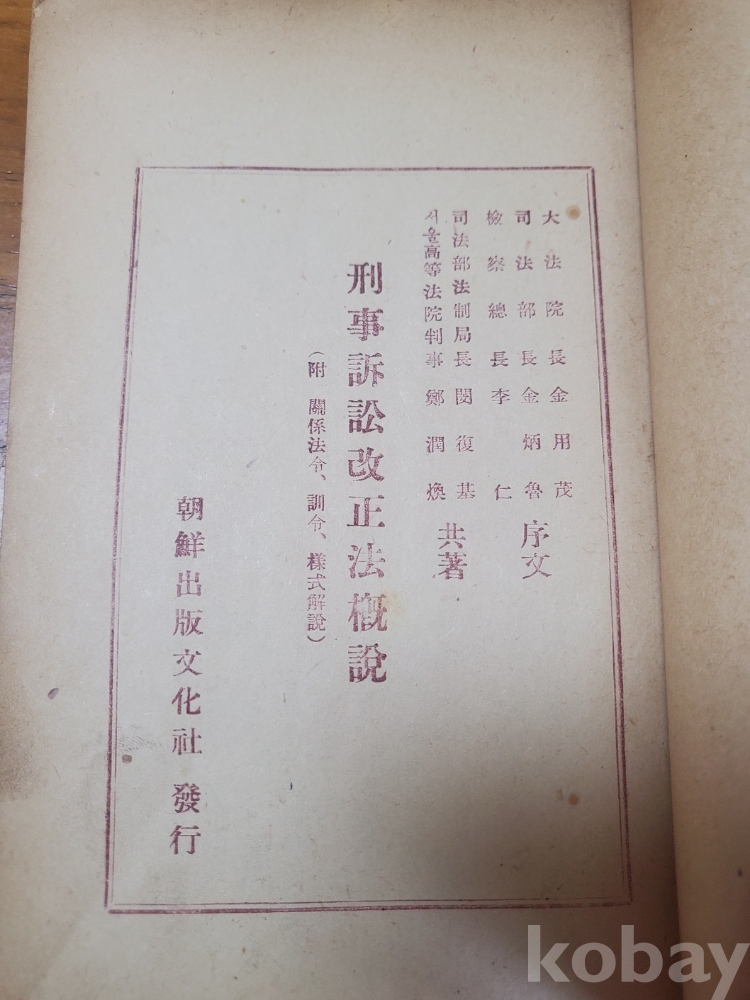 大法院長 金用茂
司法部長 金炳魯
檢察總長 李仁
序文
司法部法制局長 閔復基
서울高等法院判事 鄭潤煥
共著
刑事訴訟改正法概說
(附 關係法令、訓令、樣式解說)
朝鮮出版文化社 發行
kobay